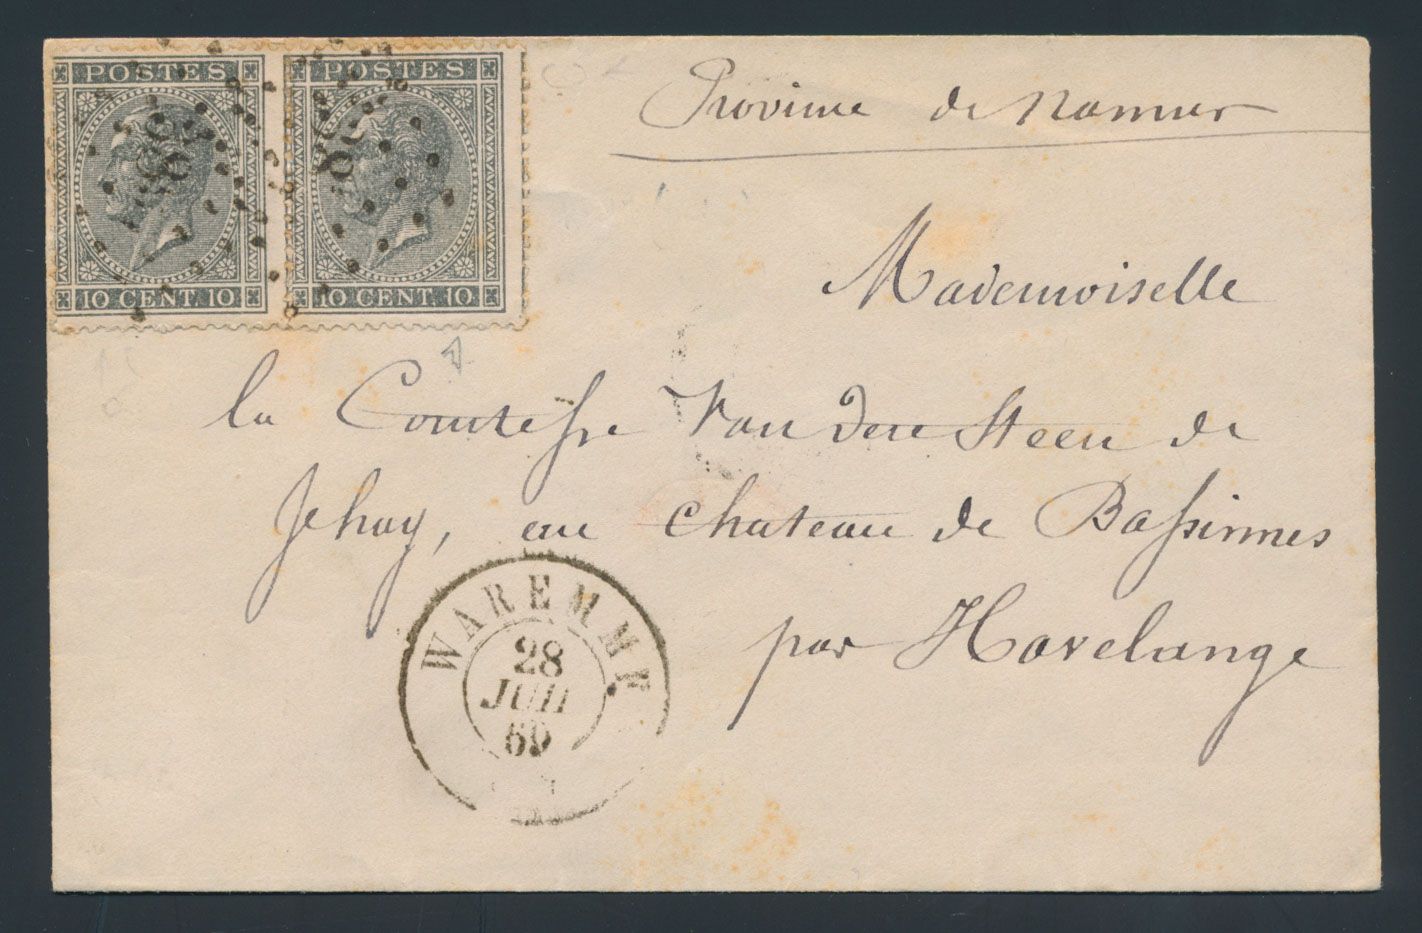 POSTES POSTES
10 CENT. 10 10 CENT. 10
Province de Namur
Mademoiselle
la Comtesse Van den Steen de
Jehay, au chateau de Bassinnes
par Havelange
WAREMME
28
JUIL
69